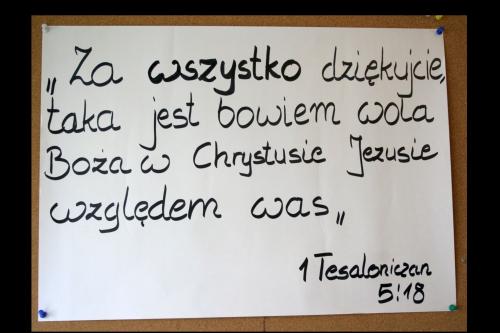 „Za wszystko dziękujcie,
taka jest bowiem wola
Boża w Chrystusie Jezusie
względem was„
1 Tesaloniczan
5:18